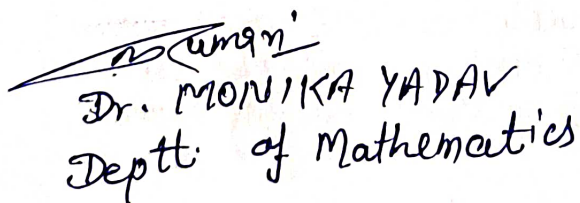 Kumari
Dr. MONIKA YADAV
Deptt. of Mathematics